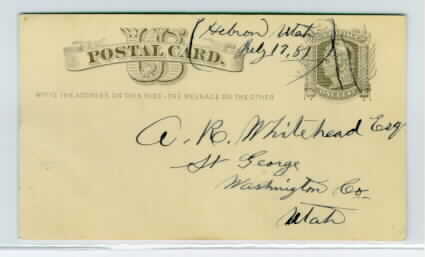 Hebron Utah
July 17, 81
US
POSTAL CARD.
WRITE THE ADDRESS ON THIS SIDE - THE MESSAGE ON THE OTHER
A. R. Whitehead Esq
St George
Washington Co
Utah